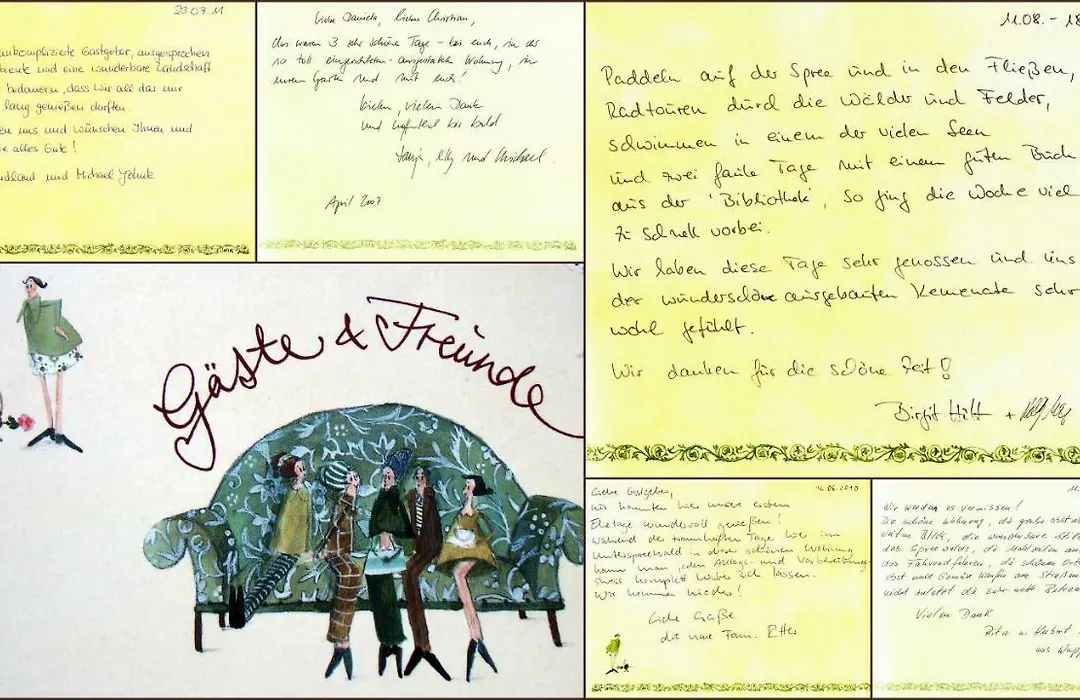 23.07.11
unkomplizierte Gastgeber, ausgesprochen
und eine wunderbare Landschaft
bedauern, dass wir all das nur
lang genießen durften.
en uns und wünschen Ihnen und
e alles Gute!
ndland und Michael
Liebe Daniela, liebe Christian,
das waren 3 sehr schöne Tage – bei euch, in der
so toll eingerichteten - ausgestatteten Wohnung, in
eurem Garten und mit euch!
Vielen, vielen Dank
und hoffentlich bis bald
Tanja, Elly und Michael.
April 2007
11.08. - 18
Paddeln auf der Spree und in den Fließen,
Radtouren durch die Wälder und Felder,
schwimmen in einem der vielen Seen
und zwei faule Tage mit einem guten Buch
aus der 'Bibliothek', so ging die Woche viel
zu schnell vorbei.
Wir haben diese Tage sehr genossen und uns
der wunderschöne ausgebauten Kemenate sehr
wohl gefühlt.
Wir danken für die schöne Zeit!
Birgit +
Gäste & Freunde
06.2010
Liebe Gastgeber,
wir konnten hier unsere ersten
Ehetage wundervoll genießen!
Während der traumhaften Tage hier im
Unterspreewald in dieser schönen Wohnung
kann man jeden Alltags- und Vorbereitungs-
stress komplett hinter sich lassen.
Wir kommen wieder!
Liebe Grüße
die neue Fam. Etter
11.
Wir werden es vermissen!
Die schöne Wohnung, das große
die wunderbare
des Spreewaldes, die Mahlzeiten
das Fahrradfahren, die schönen
Obst und Gemüse kaufen am
nicht zuletzt die sehr nette
Vielen Dank
Rita u. Herbert
aus